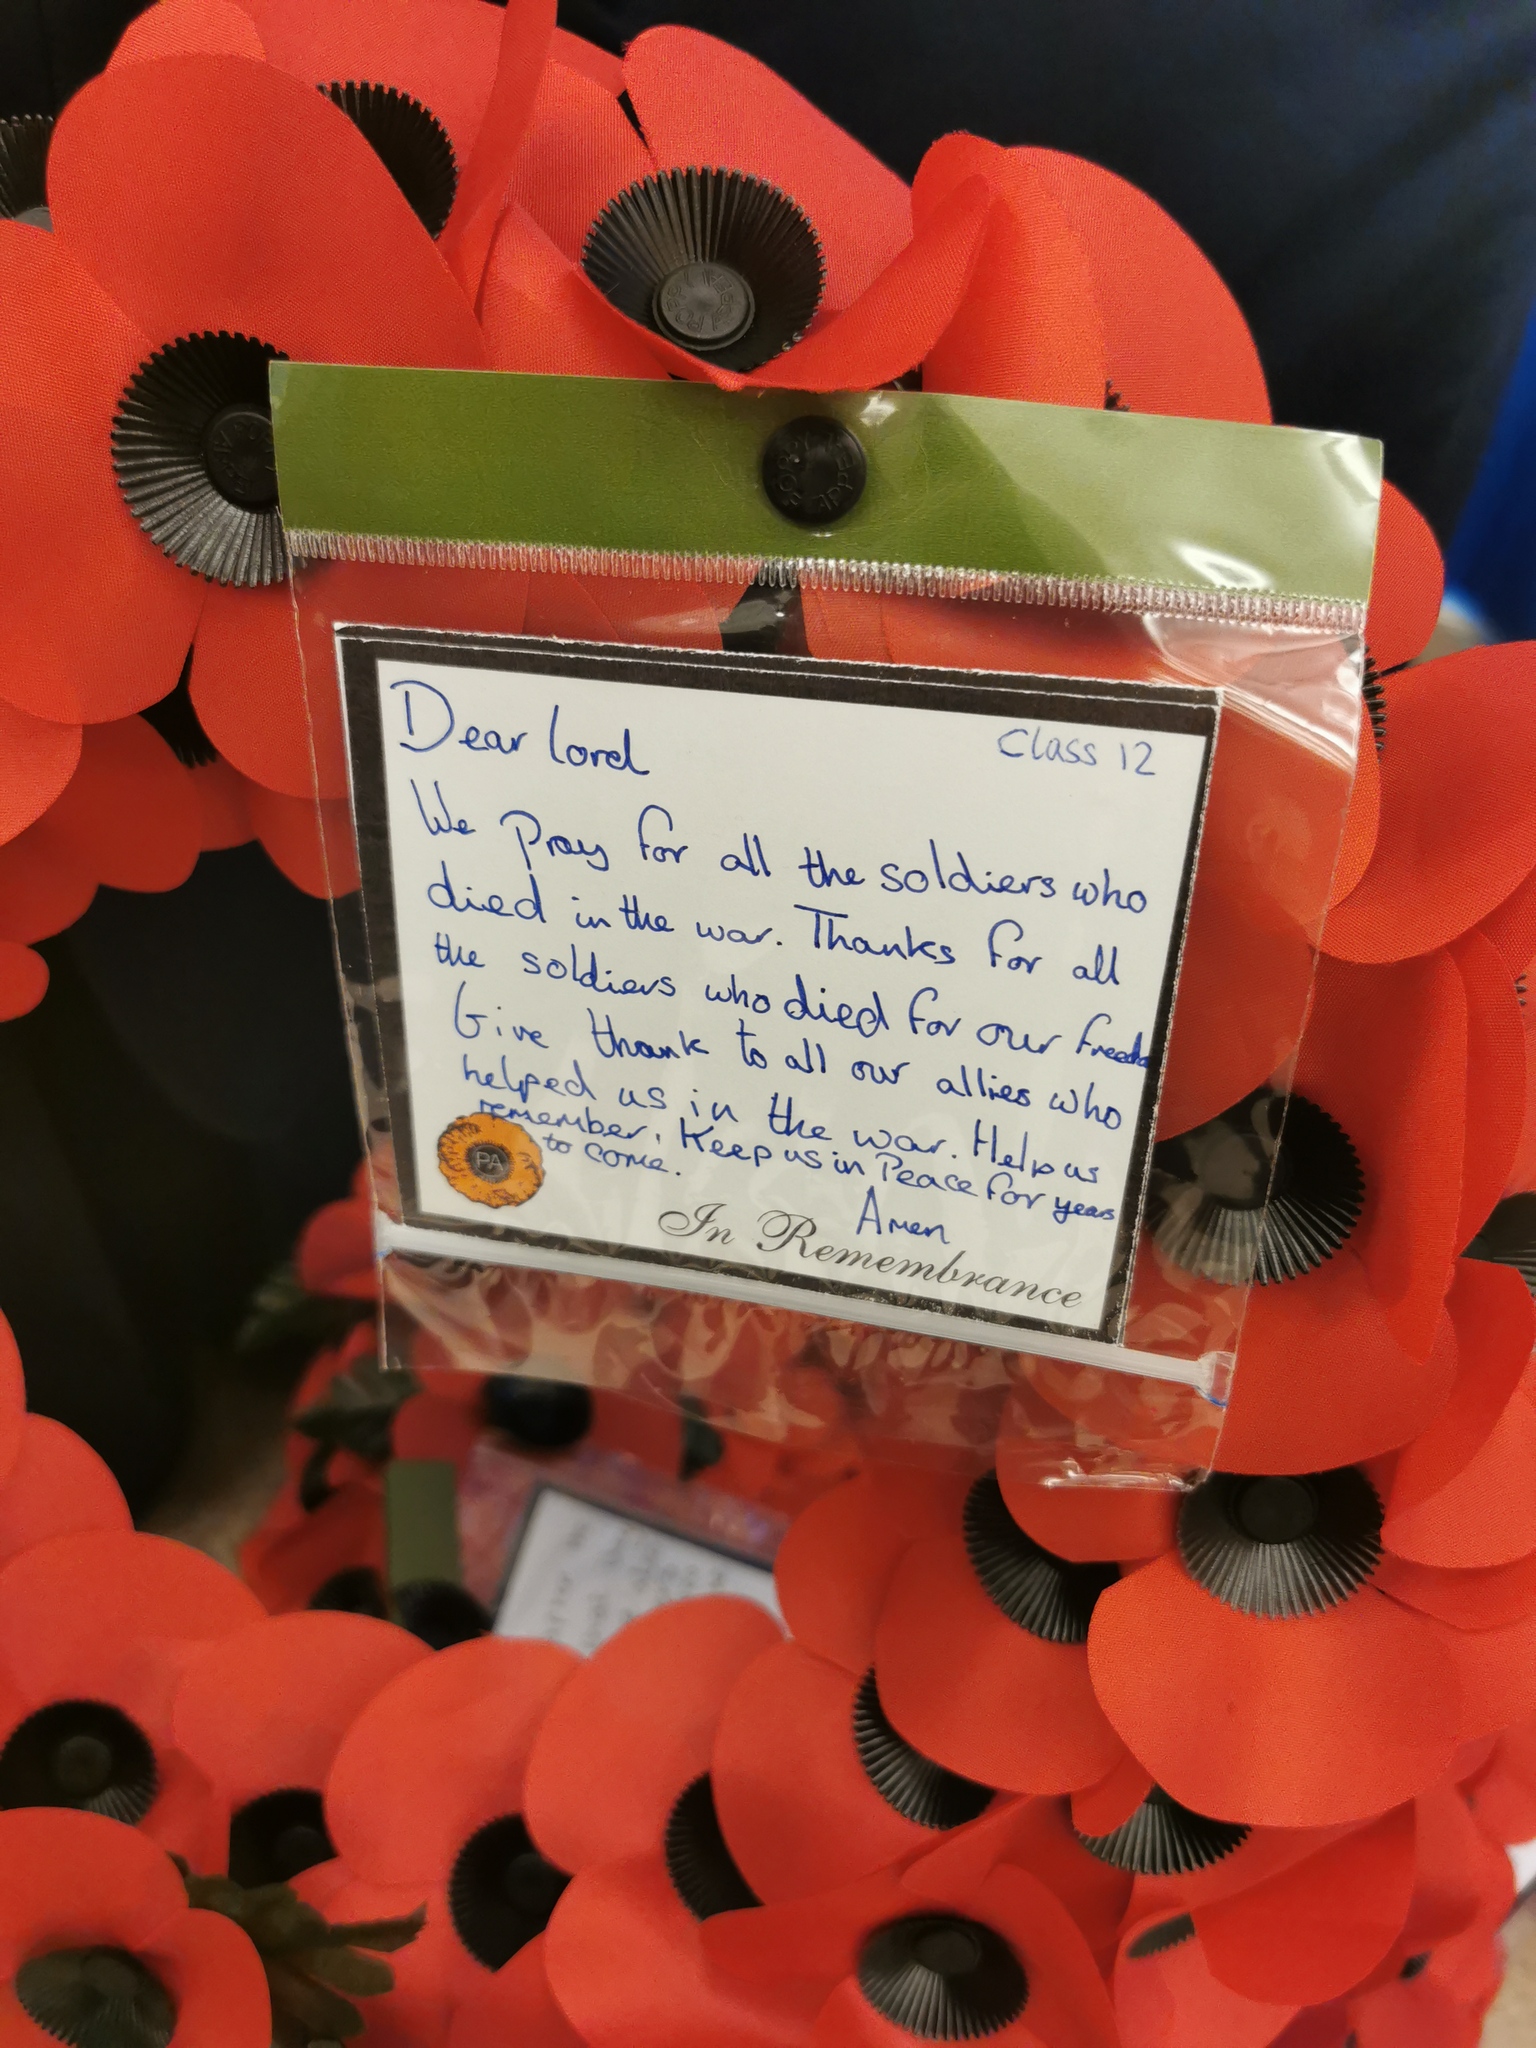 POPPY APPEAL
POPPY APPEAL
Dear Lord
Class 12
We Pray for all the soldiers who
died in the war. Thanks for all
the soldiers who died for our freedo
Give thank to all our allies who
helped us in the war. Help us
remember. Keep us in Peace for years
to come.
Amen
PA
In Remembrance